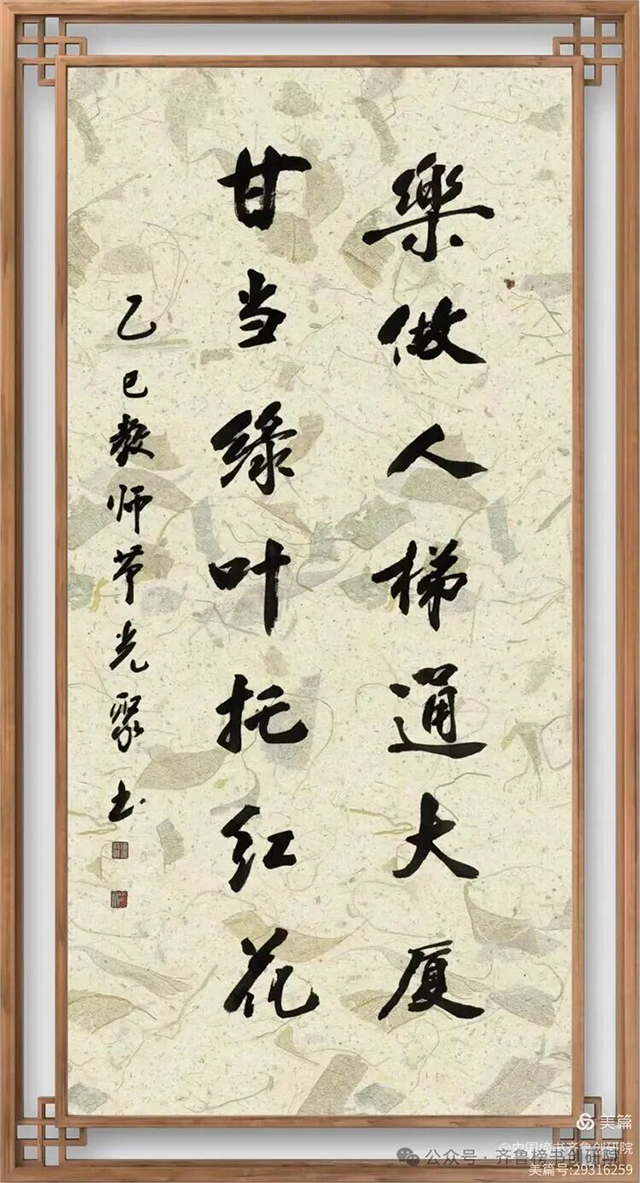 樂做人梯通大厦
甘当緑叶托红花
乙巳教师节光聚书
美篇
@中国榜书齐鲁创研院
公众号·齐鲁榜书创研院
美篇号:29316259